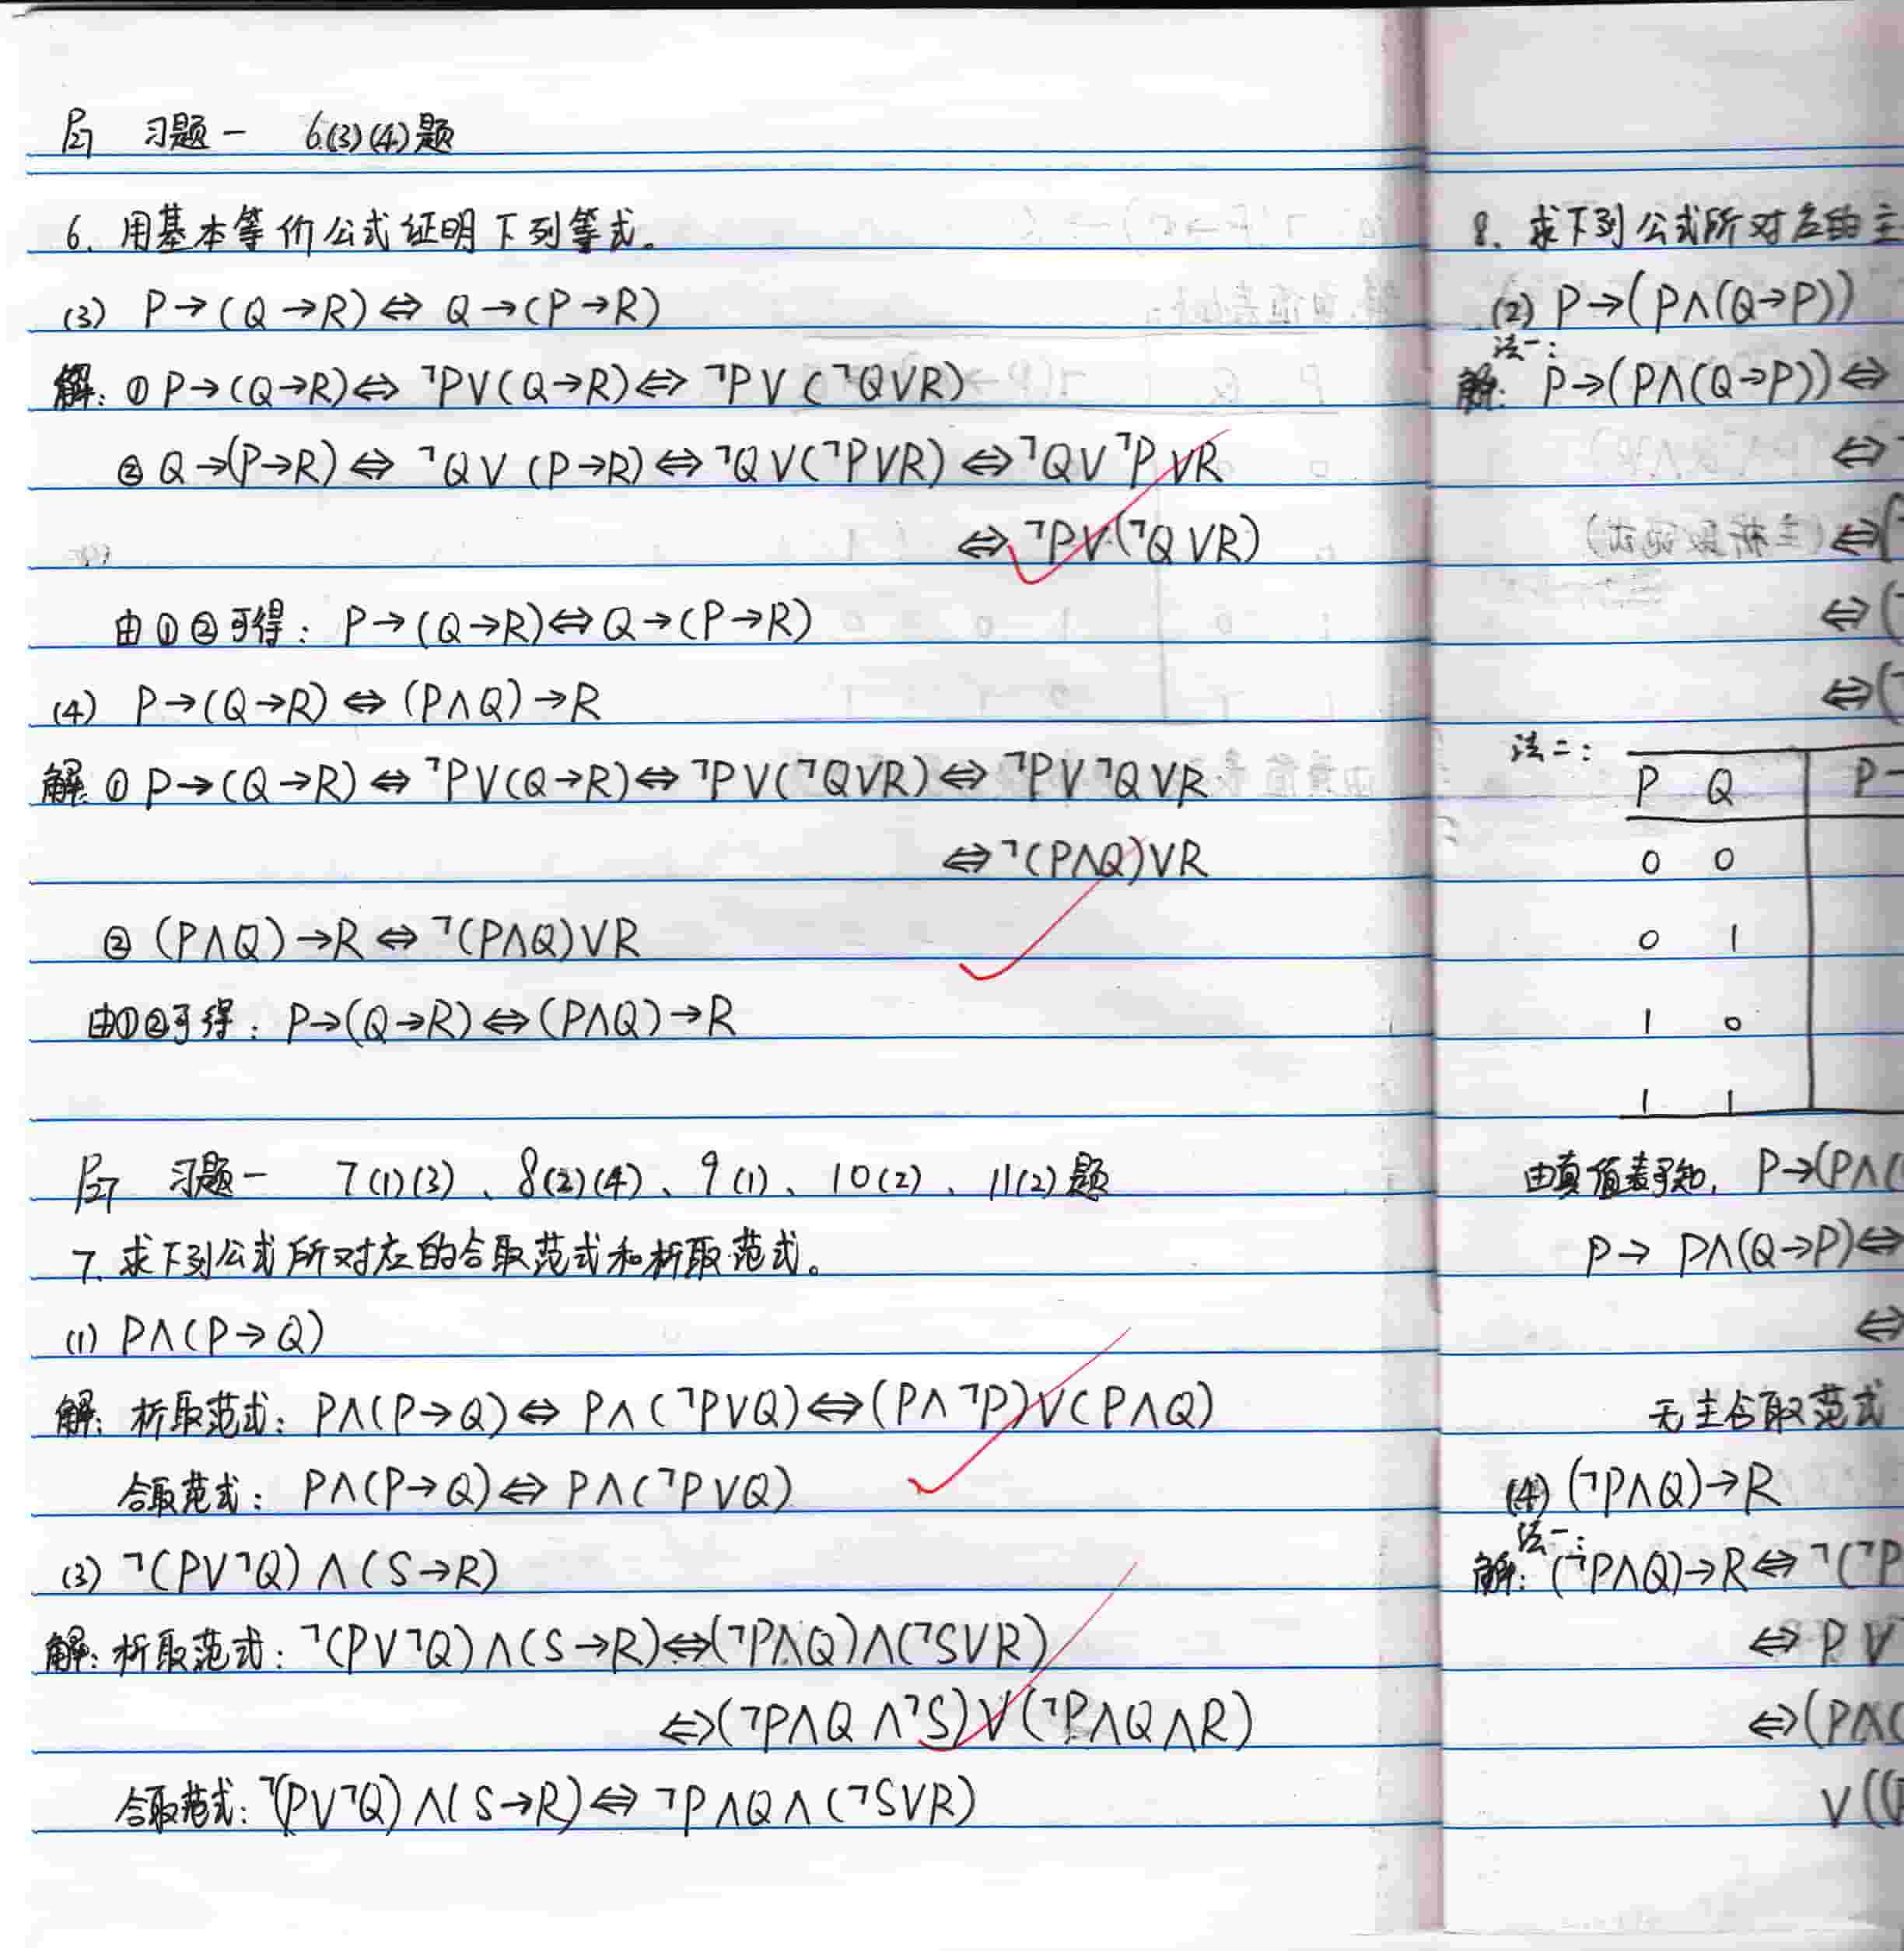 P27 习题一 6(3)(4)题
6. 用基本等价公式证明下列等式。
(3) P→(Q→R)⇔ Q→(P→R)
解: ① P→(Q→R)⇔ ¬P∨(Q→R)⇔ ¬P∨(¬Q∨R)
② Q→(P→R)⇔ ¬Q∨(P→R)⇔¬Q∨(¬P∨R)⇔¬Q∨¬P∨R
⇔ ¬P∨(¬Q∨R)
由①②可得: P→(Q→R)⇔Q→(P→R)
(4) P→(Q→R)⇔(P∧Q)→R
解: ① P→(Q→R)⇔¬P∨(Q→R)⇔¬P∨(¬Q∨R)⇔¬P∨¬Q∨R
⇔¬(P∧Q)∨R
② (P∧Q)→R⇔¬(P∧Q)∨R
由①②可得: P→(Q→R)⇔(P∧Q)→R
P27 习题一 7(1)(3)、8(2)(4)、9(1)、10(2)、11(2)题
7. 求下列公式所对应的合取范式和析取范式。
(1) P∧(P→Q)
解: 析取范式: P∧(P→Q)⇔P∧(¬P∨Q)⇔(P∧¬P)∨(P∧Q)
合取范式: P∧(P→Q)⇔P∧(¬P∨Q)
(3) ¬(P∨¬Q)∧(S→R)
解: 析取范式: ¬(P∨¬Q)∧(S→R)⇔(¬P∧Q)∧(¬S∨R)
⇔(¬P∧Q∧¬S)∨(¬P∧Q∧R)
合取范式: ¬(P∨¬Q)∧(S→R)⇔¬P∧Q∧(¬S∨R)
8. 求下列公式所对应的主
(2) P→(P∧(Q→P))
法一:
解: P→(P∧(Q→P))⇔
⇔
⇔
⇔(
⇔(
法二:
P Q P→
0 0
0 1
1 0
1 1
由真值表可知, P→(P∧(
P→ P∧(Q→P)⇔
⇔
无主合取范式
(4) (¬P∧Q)→R
法一:
解: (¬P∧Q)→R⇔¬(¬P
⇔ P∨
⇔(P∧
∨((